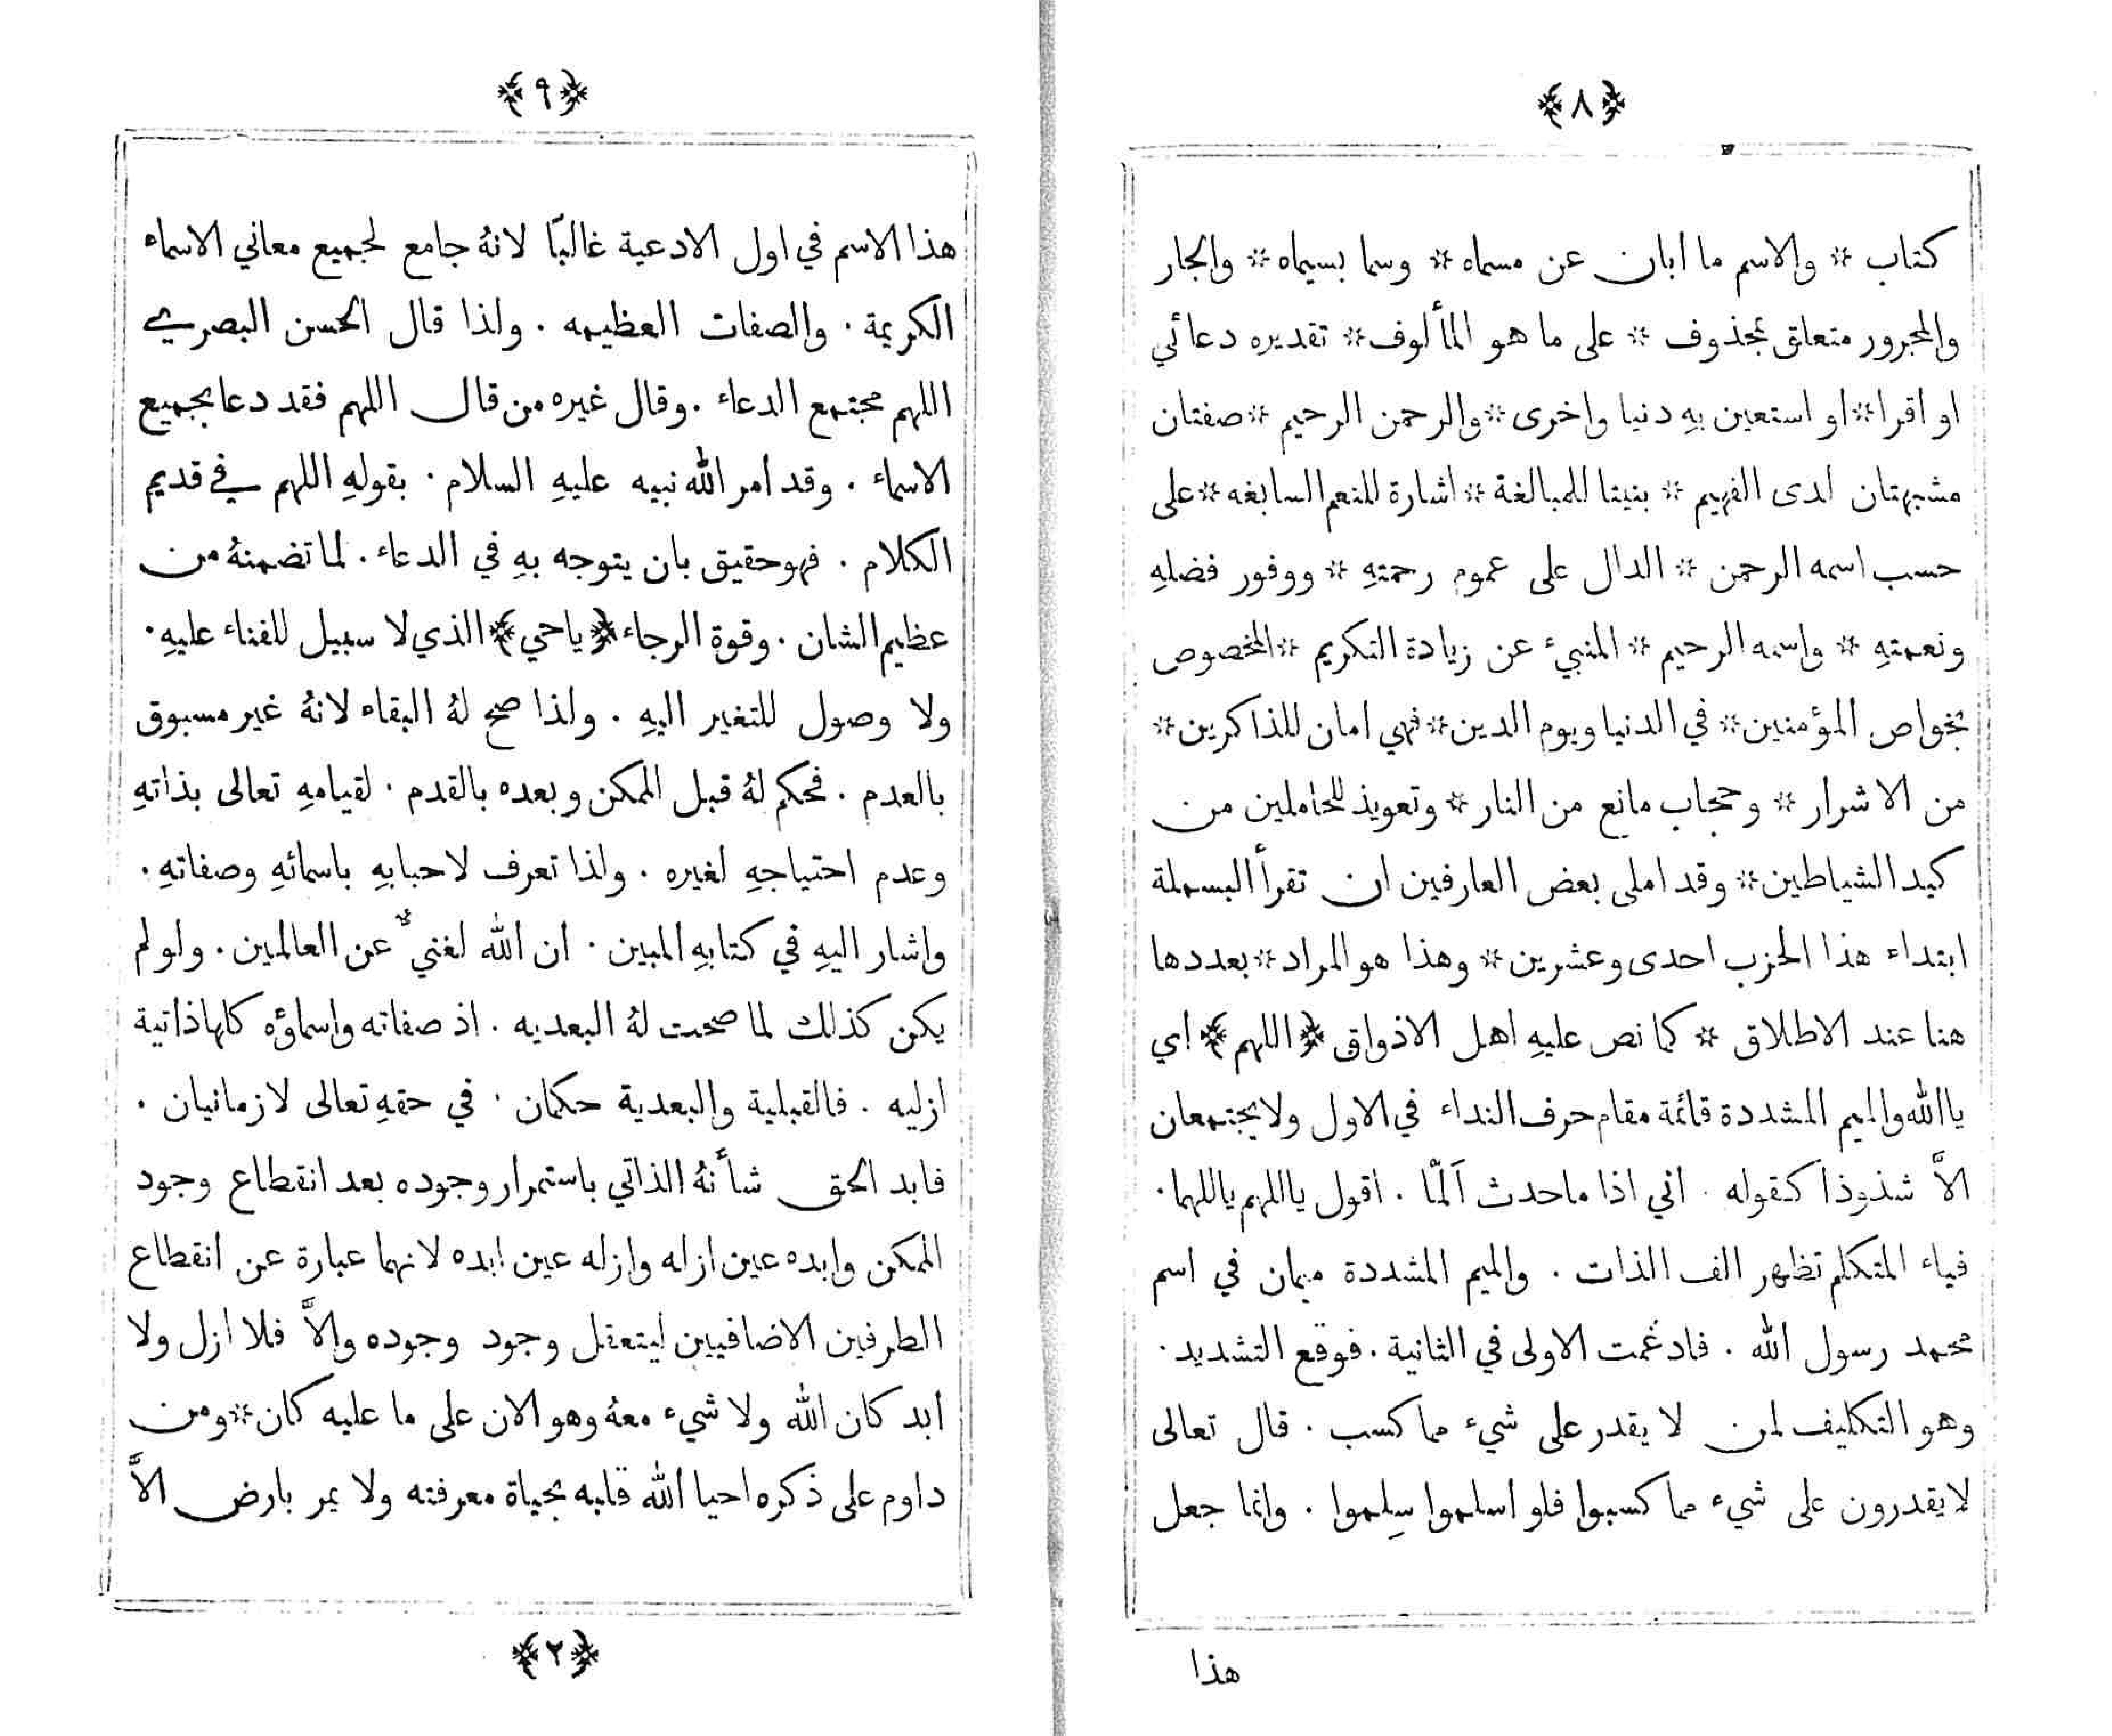 ﴿٨﴾
كتاب * والاسم ما أبان عن مسماه * وسما بسيماه * والجار
والمجرور متعلق بمحذوف * على ما هو المألوف * تقديره دعائي
او اقرا * او استعين بهِ دنيا واخرى * والرحمن الرحيم * صفتان
مشبهتان لدى الفهيم * بنيتا للمبالغة * اشارة للنعم السابغه * على
حسب اسمه الرحمن * الدال على عموم رحمتهِ * ووفور فضلهِ
ونعمتهِ * واسمه الرحيم * المنبيء عن زيادة التكريم * المخصوص
بخواص المؤمنين * في الدنيا ويوم الدين * فهي امان للذاكرين *
من الاشرار * وحجاب مانع من النار * وتعويذ للحاملين من
كيد الشياطين * وقد املى بعض العارفين ان تقرأ البسملة
ابتداء هذا الحزب احدى وعشرين * وهذا هو المراد * بعددها
هنا عند الاطلاق * كما نص عليهِ اهل الاذواق ﴿اللهم﴾ اي
يا الله والميم المشددة قائمة مقام حرف النداء في الاول ولا يجتمعان
الاَّ شذوذا كقوله . اني اذا ما حدث آلمّا . اقول يا اللهم يا اللهما .
فياء المتكلم تظهر الف الذات . والميم المشددة ميمان في اسم
محمد رسول الله . فادغمت الاولى في الثانية . فوقع التشديد .
وهو التكليف لمن لا يقدر على شيء مما كسب . قال تعالى
لا يقدرون على شيء مما كسبوا فلو اسلموا سِلموا . وانما جعل
هذا
﴿٩﴾
هذا الاسم في اول الادعية غالبًا لانهُ جامع لجميع معاني الاسماء
الكريمة . والصفات العظيمه . ولذا قال الحسن البصري
اللهم مجتمع الدعاء . وقال غيره من قال اللهم فقد دعا بجميع
الاسماء . وقد أمر الله نبيه عليهِ السلام . بقولهِ اللهم في قديم
الكلام . فهو حقيق بان يتوجه بهِ في الدعاء . لما تضمنهُ من
عظيم الشان . وقوة الرجاء ﴿يا حي﴾ الذي لا سبيل للفناء عليهِ .
ولا وصول للتغير اليهِ . ولذا صح لهُ البقاء لانهُ غير مسبوق
بالعدم . فحكم لهُ قبل الممكن وبعده بالقدم . لقيامهِ تعالى بذاتهِ
وعدم احتياجهِ لغيره . ولذا تعرف لاحبابهِ باسمائهِ وصفاتهِ .
واشار اليهِ في كتابهِ المبين . ان الله لغنيٌّ عن العالمين . ولو لم
يكن كذلك لما صحت لهُ البعديه . اذ صفاته واسماؤه كلها ذاتية
ازليه . فالقبلية والبعدية حكمان . في حقهِ تعالى لا زمانيان .
فابد الحق شأنهُ الذاتي باستمرار وجوده بعد انقطاع وجود
الممكن وابده عين ازله وازله عين ابده لانهما عبارة عن انقطاع
الطرفين الاضافيين ليتعقل وجود وجوده والاَّ فلا ازل ولا
أبد كان الله ولا شيء معهُ وهو الان على ما عليه كان * ومن
داوم على ذكره احيا الله قلبه بحياة معرفته ولا يمر بارض الاَّ
﴿٢﴾